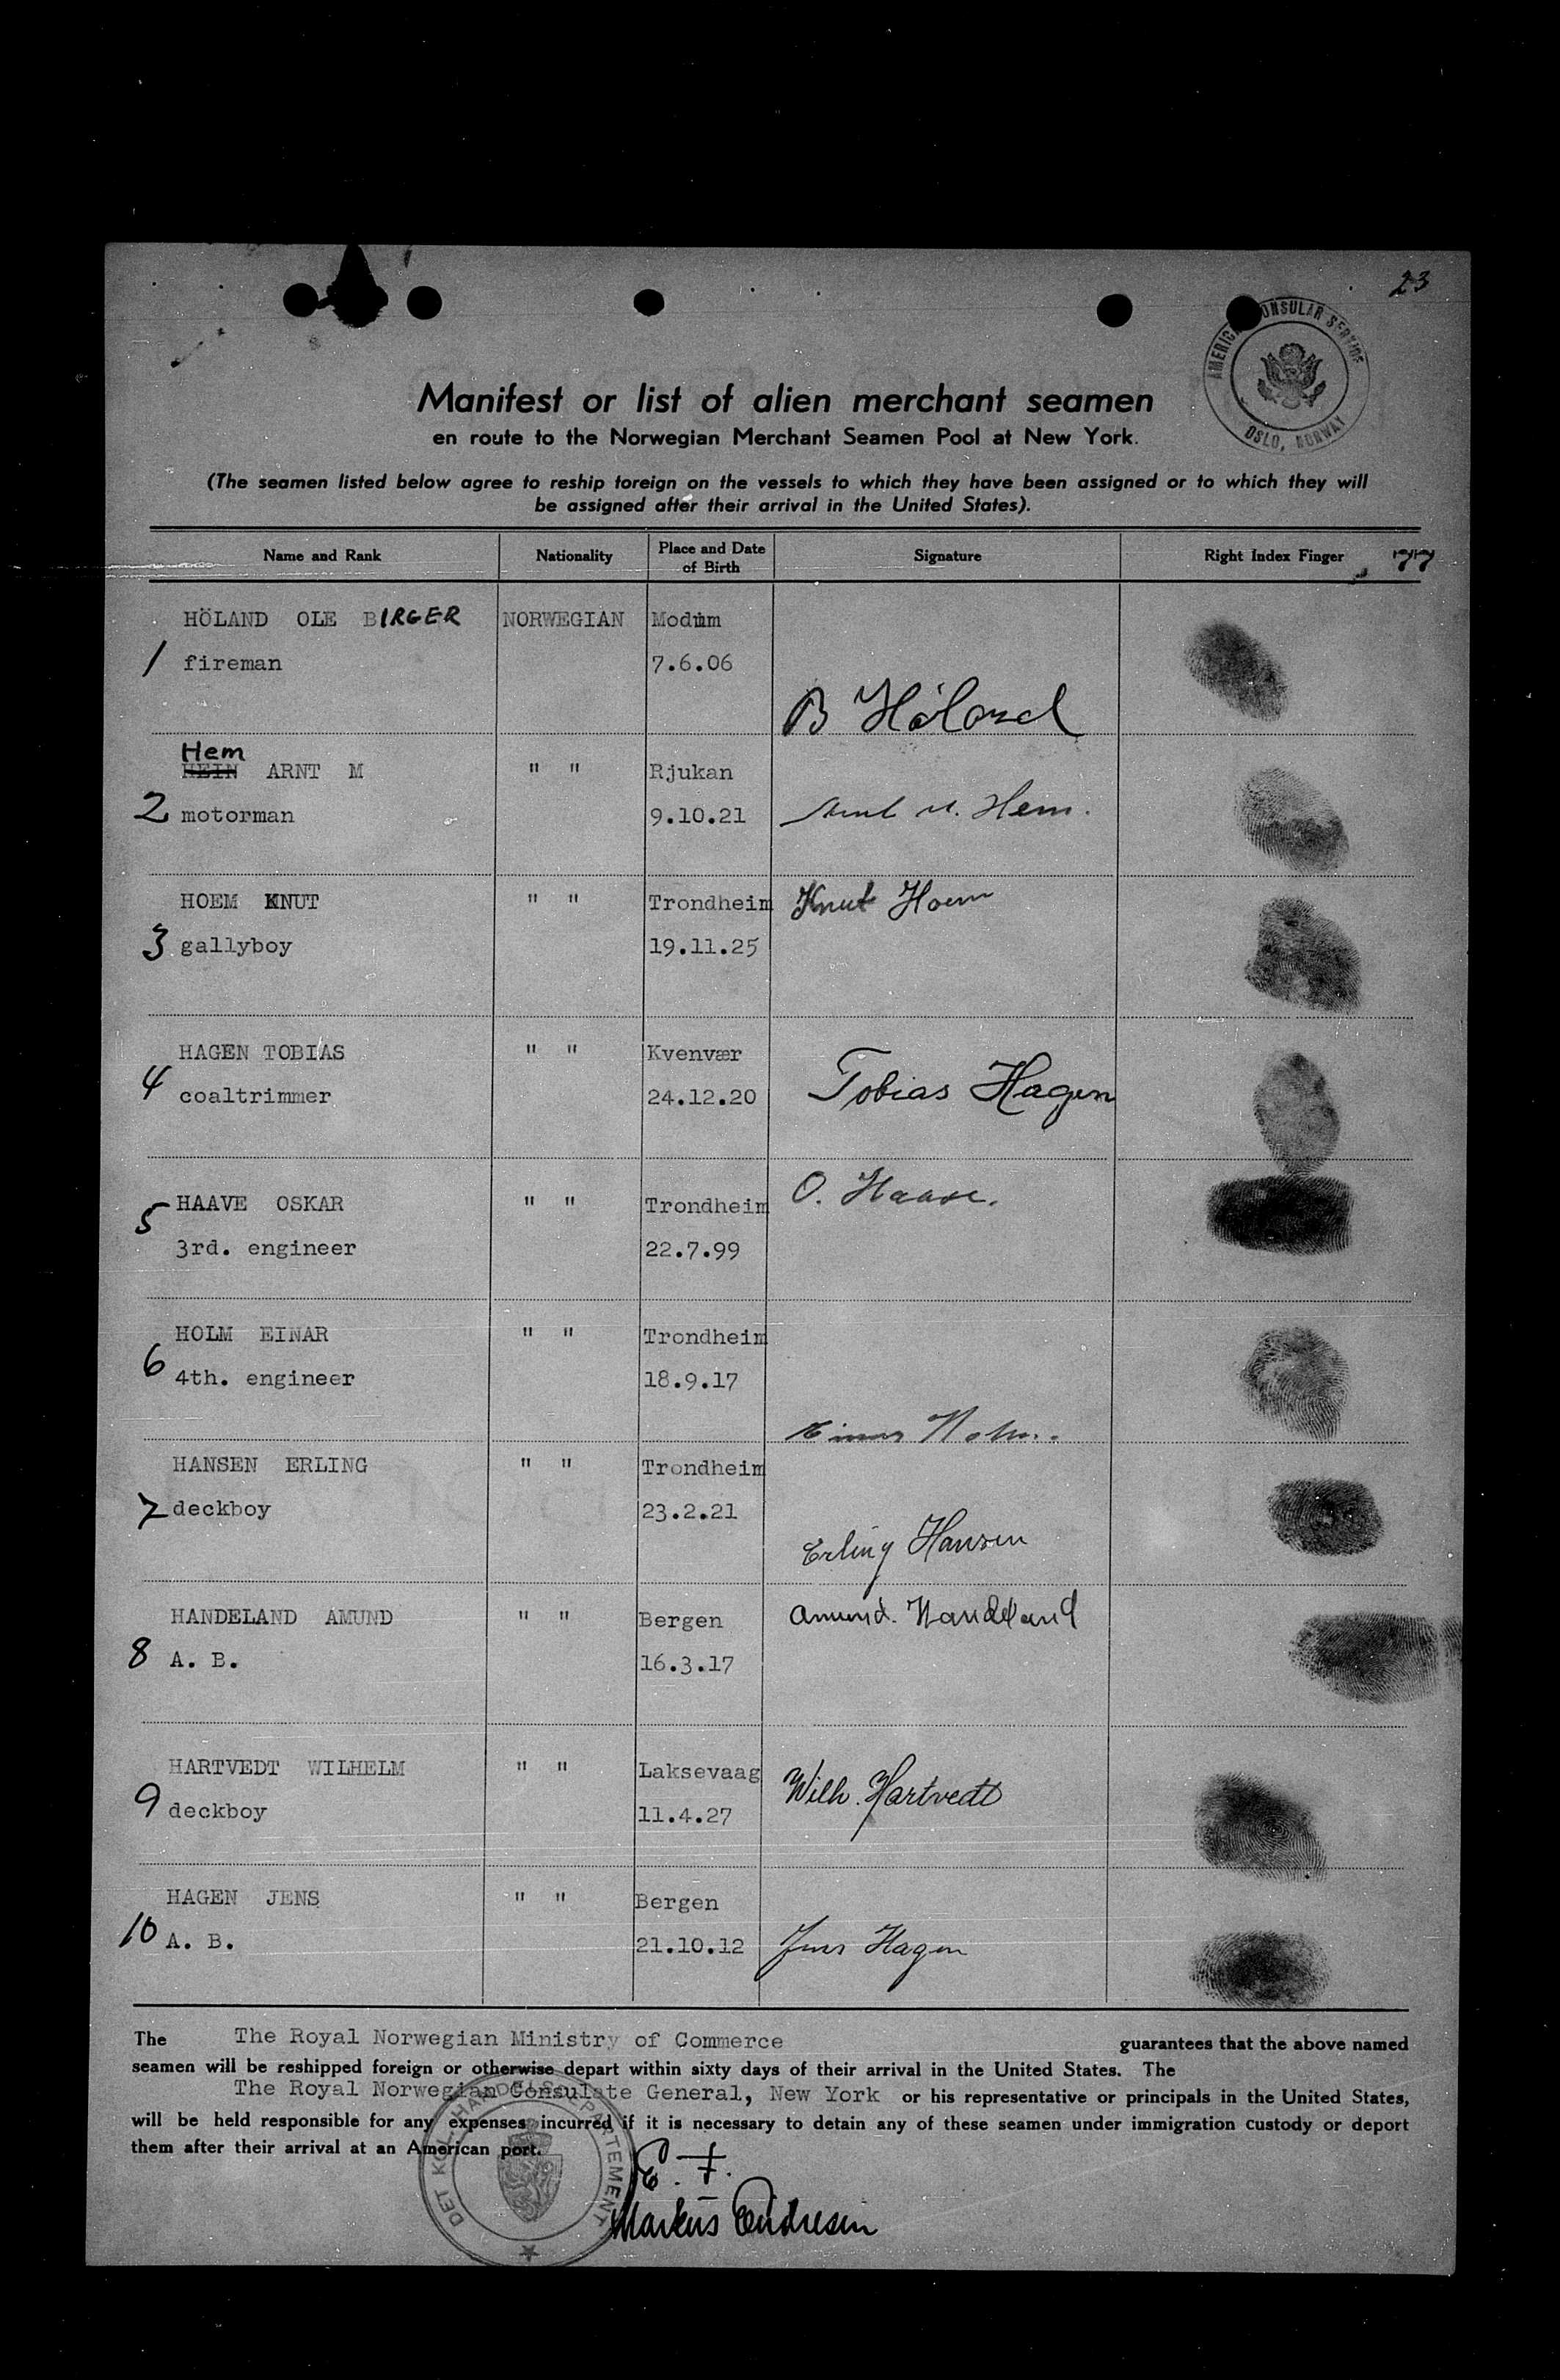 23
AMERICAN CONSULAR SERVICE
OSLO, NORWAY
Manifest or list of alien merchant seamen
en route to the Norwegian Merchant Seamen Pool at New York.
(The seamen listed below agree to reship foreign on the vessels to which they have been assigned or to which they will
be assigned after their arrival in the United States).
Name and Rank Nationality Place and Date of Birth Signature Right Index Finger 77
HÖLAND OLE BIRGER NORWEGIAN Modum
1 fireman 7.6.06
B Höland
Hem
HEIN ARNT M " " Rjukan
2 motorman 9.10.21 Arnt M. Hem.
HOEM KNUT " " Trondheim Knut Hoem
3 gallyboy 19.11.25
HAGEN TOBIAS " " Kvenvær
4 coaltrimmer 24.12.20 Tobias Hagen
HAAVE OSKAR " " Trondheim O. Haave.
5 3rd. engineer 22.7.99
HOLM EINAR " " Trondheim
6 4th. engineer 18.9.17
Einar Holm.
HANSEN ERLING " " Trondheim
7 deckboy 23.2.21
Erling Hansen
HANDELAND AMUND " " Bergen Amund. Handeland
8 A. B. 16.3.17
HARTVEDT WILHELM " " Laksevaag
9 deckboy 11.4.27 Wilh. Hartvedt
HAGEN JENS " " Bergen
10 A. B. 21.10.12 Jens Hagen
The The Royal Norwegian Ministry of Commerce guarantees that the above named
seamen will be reshipped foreign or otherwise depart within sixty days of their arrival in the United States. The
The Royal Norwegian Consulate General, New York or his representative or principals in the United States,
will be held responsible for any expenses incurred if it is necessary to detain any of these seamen under immigration custody or deport
them after their arrival at an American port.
E. F.
Markus Endresen
DET KGL. HANDELSDEPARTEMENT